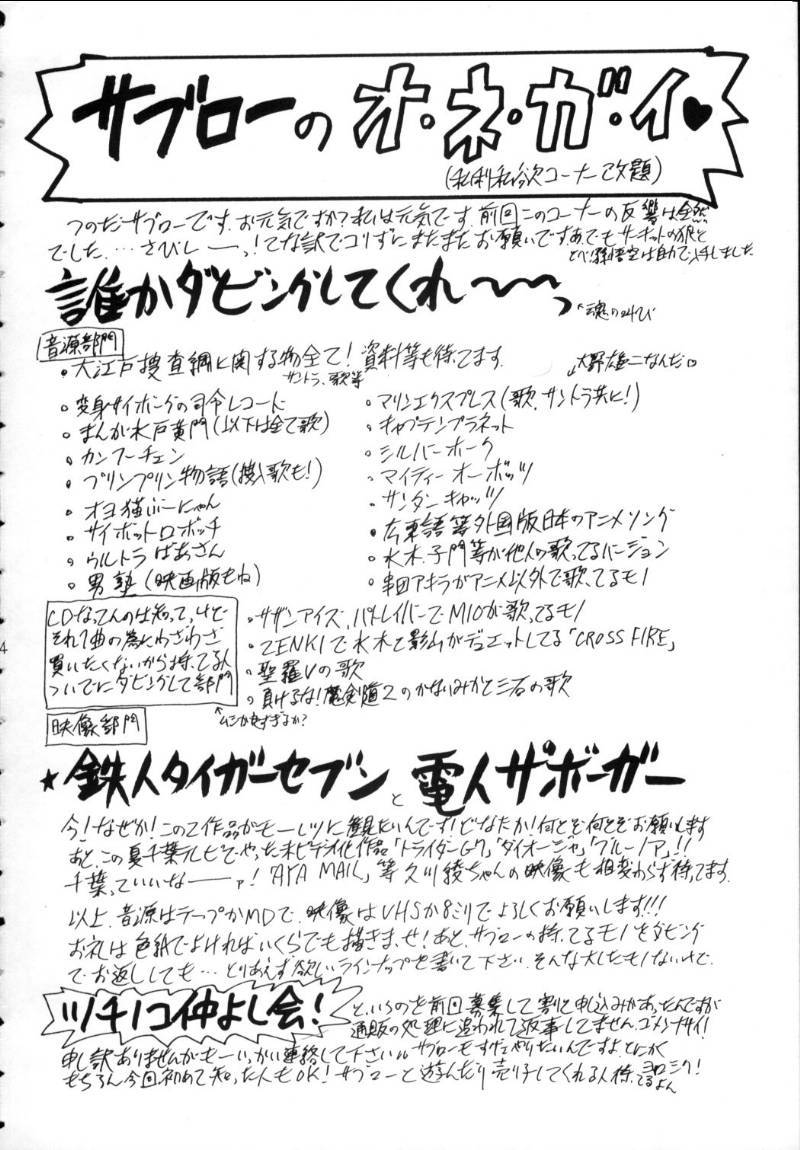 サブローの オ・ネ・ガ・イ♥
(私利私欲コーナー改題)
つのだサブローです。お元気ですか?私は元気です。前回このコーナーの反響は全然
でした…さびしーーっ!てな訳でコリずにまたまたお願いです。あ、でもサーキットの狼と
とべ!孫悟空は自力で入手しました。
誰かダビングしてくれ〜〜〜っ
↑魂の叫び
音源部門
・大江戸捜査網に関する物全て!資料等も待ってます。
サントラ、歌等
↓大野雄二なんだ♡
・変身サイボーグの司令レコード
・まんが水戸黄門(以下は全て歌)
・カンフーチェン
・プリンプリン物語(挿入歌も!)
・オヨネコぶーにゃん
・サイボットロボッチ
・ウルトラばあさん
・男塾(映画版もね)
・マリンエクスプレス(歌、サントラ共に!)
・キャプテンプラネット
・シルバーホーク
・マイティーオーボッツ
・サンダーキャッツ
・広東語等外国版日本のアニメソング
・水木、子門等が他人の歌ってるバージョン
・串田アキラがアニメ以外で歌ってるモノ
CDなってんのは知って、けど
それ1曲の為にわざわざ
買いたくないから持ってる人
ついでにダビングして部門
↑ムシが良すぎるか?
・サザンアイズ、パトレイバーでMIOが歌ってるモノ
・ZENKIで水木と影山がデュエットしてる「CROSS FIRE」
・聖羅Vの歌
・負けるな!魔剣道2のかないみかと三石の歌
映像部門
★鉄人タイガーセブンと電人ザボーガー
今!なぜか!この2作品がモーレツに観たいんです!どなたか!何とぞ何とぞお願いします
あと、この夏千葉テレビでやった未ビデオ化作品「トライダーG7」「ダイオージャ」「ブルーノア」!!
千葉っていいなーーァ!「AYA MAIL」等久川綾ちゃんの映像も相変わらず待ってます。
以上、音源はテープかMDで、映像はVHSか8ミリでよろしくお願いします!!!
お礼は色紙でよければいくらでも描きまっせ!あと、サブローの持ってるモノをダビング
でお返ししても…とりあえず欲しいラインナップを書いて下さい。そんな大したモノないけど。
ツチノコ仲よし会!
というのを前回募集して割と申込みがあったんですが
通販の処理に追われて返事してません。ゴメンナサイ!
申し訳ありませんがもーいっかい連絡して下さい。サブローもすげェやりたいんですよ。とにかく
もちろん今回初めて知った人もOK!サブローと遊んだり売り子してくれる人待ってるよん ヨロシク!
4